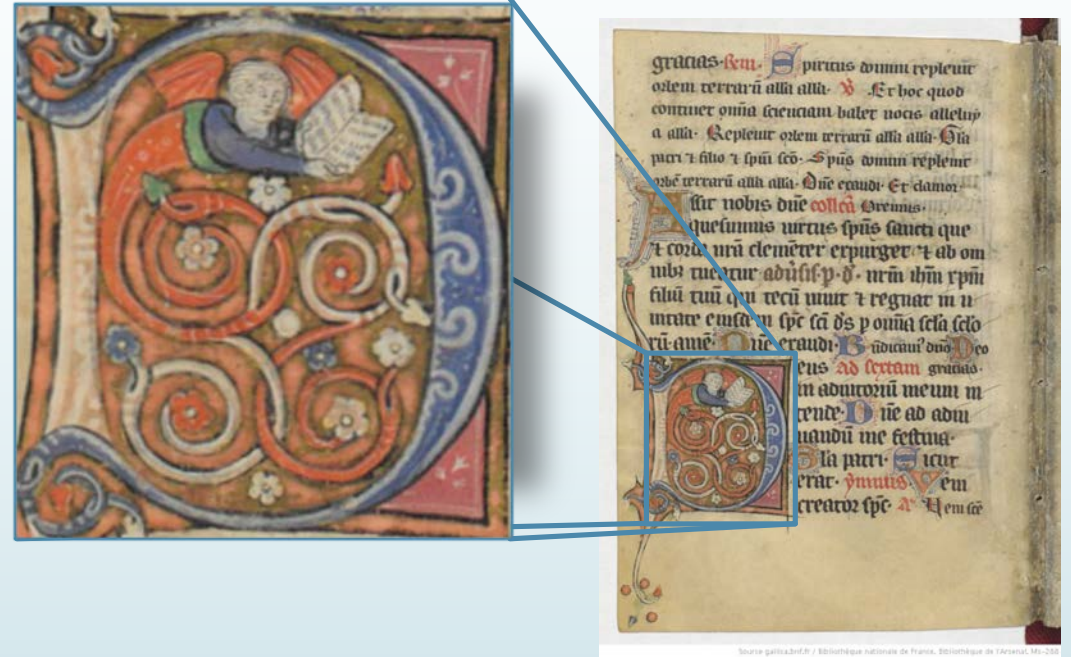 gracias· Spiritus domini repleuit
orbem terrarū alla alla· ℣ ·Et hoc quod
continet oīnia scienciam habet uocis alleluy
a alla· Repleuit orbem terrarū alla alla· Gla
patri ⁊ filio ⁊ spūi scō· Spūs domini repleuit
orbē terrarū alla alla· Dñe exaudi· Et clamor·
Assit nobis dñe collcā Oremus·
quesumus uirtus spūs sancti que
⁊ corda nrā clemēter expurget ⁊ ab om
nibꝫ tueatur p·d· nrm̄ ihm̄ xpm̄
filiū tuū qui tecū uiuit ⁊ regnat in u
nitate eiusdem spc̄ sci ds̄ p omnia scla sclo
rū·amē· Dñe exaudi· dño Deo
Deus Ad sextam gracias·
in adiutoriū meum in
tende· Dñe ad adiu
uandū me festina·
Gla patri· Sicut
erat· ymnus Veni
creator spc· A Veni scē
Source gallica.bnf.fr / Bibliothèque nationale de France, Bibliothèque de l'Arsenal, Ms-288